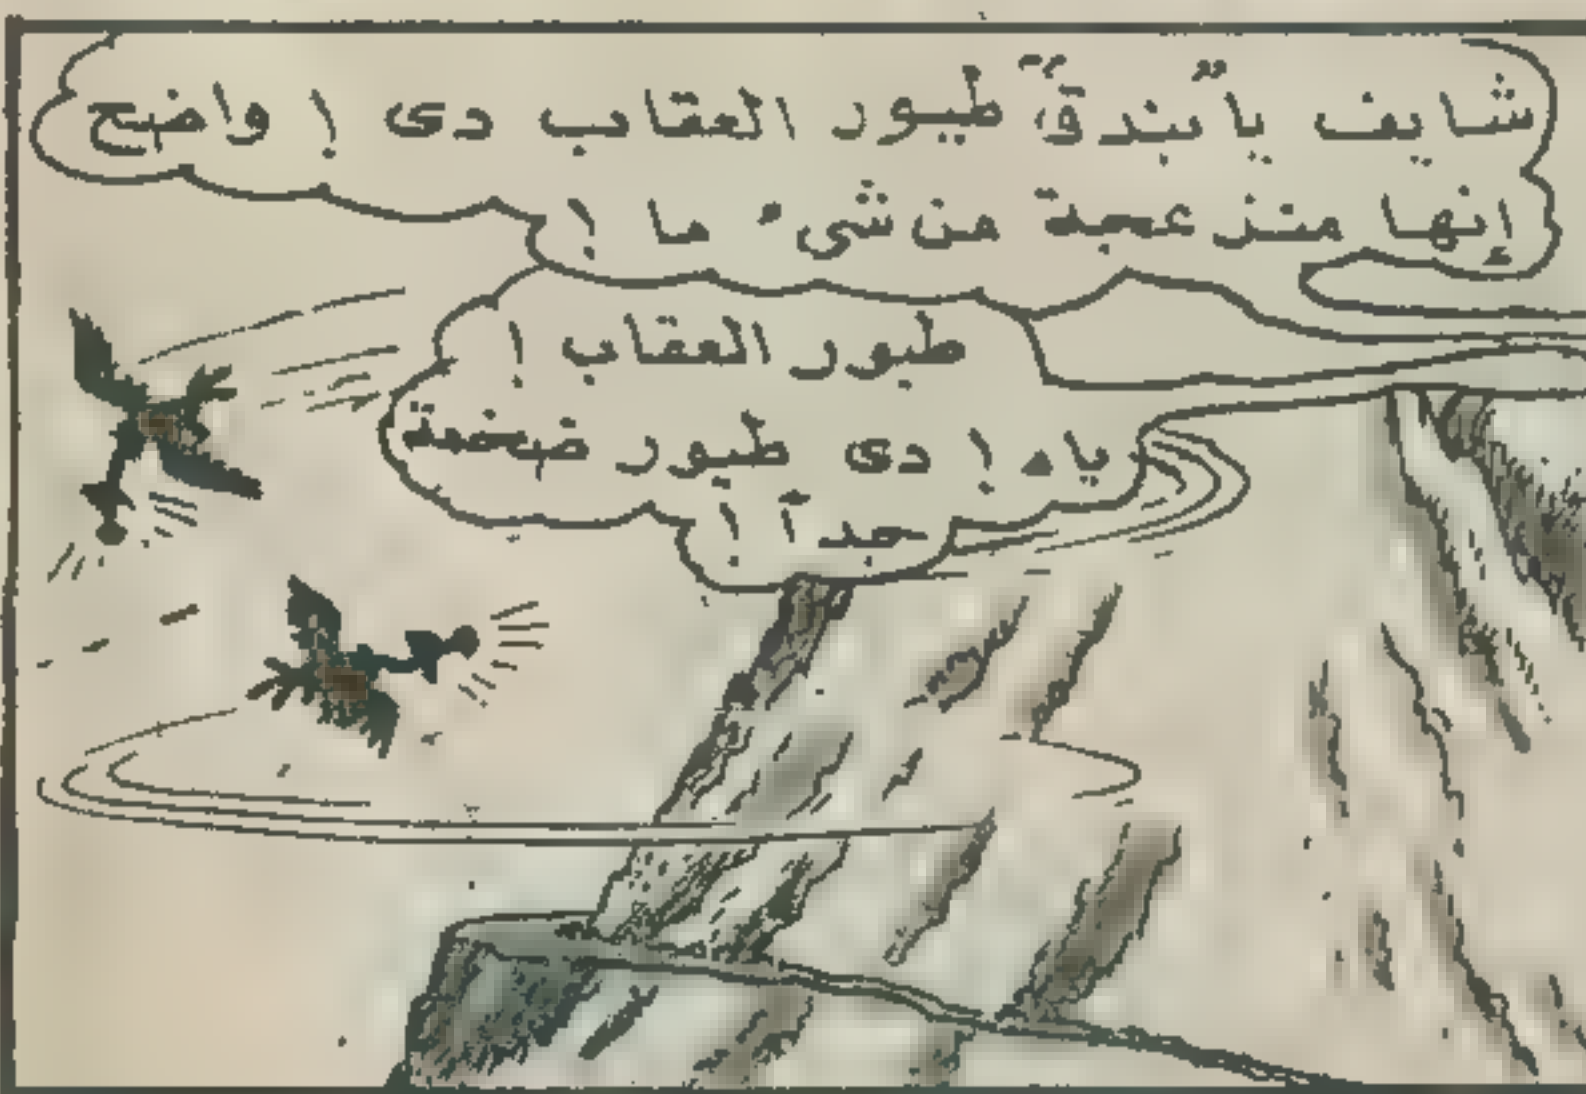 شايف يا "بندق" طيور العقاب دى ! واضح
إنها منزعجة من شىء ما !
طيور العقاب !
ياه ! دى طيور ضخمة
جداً !